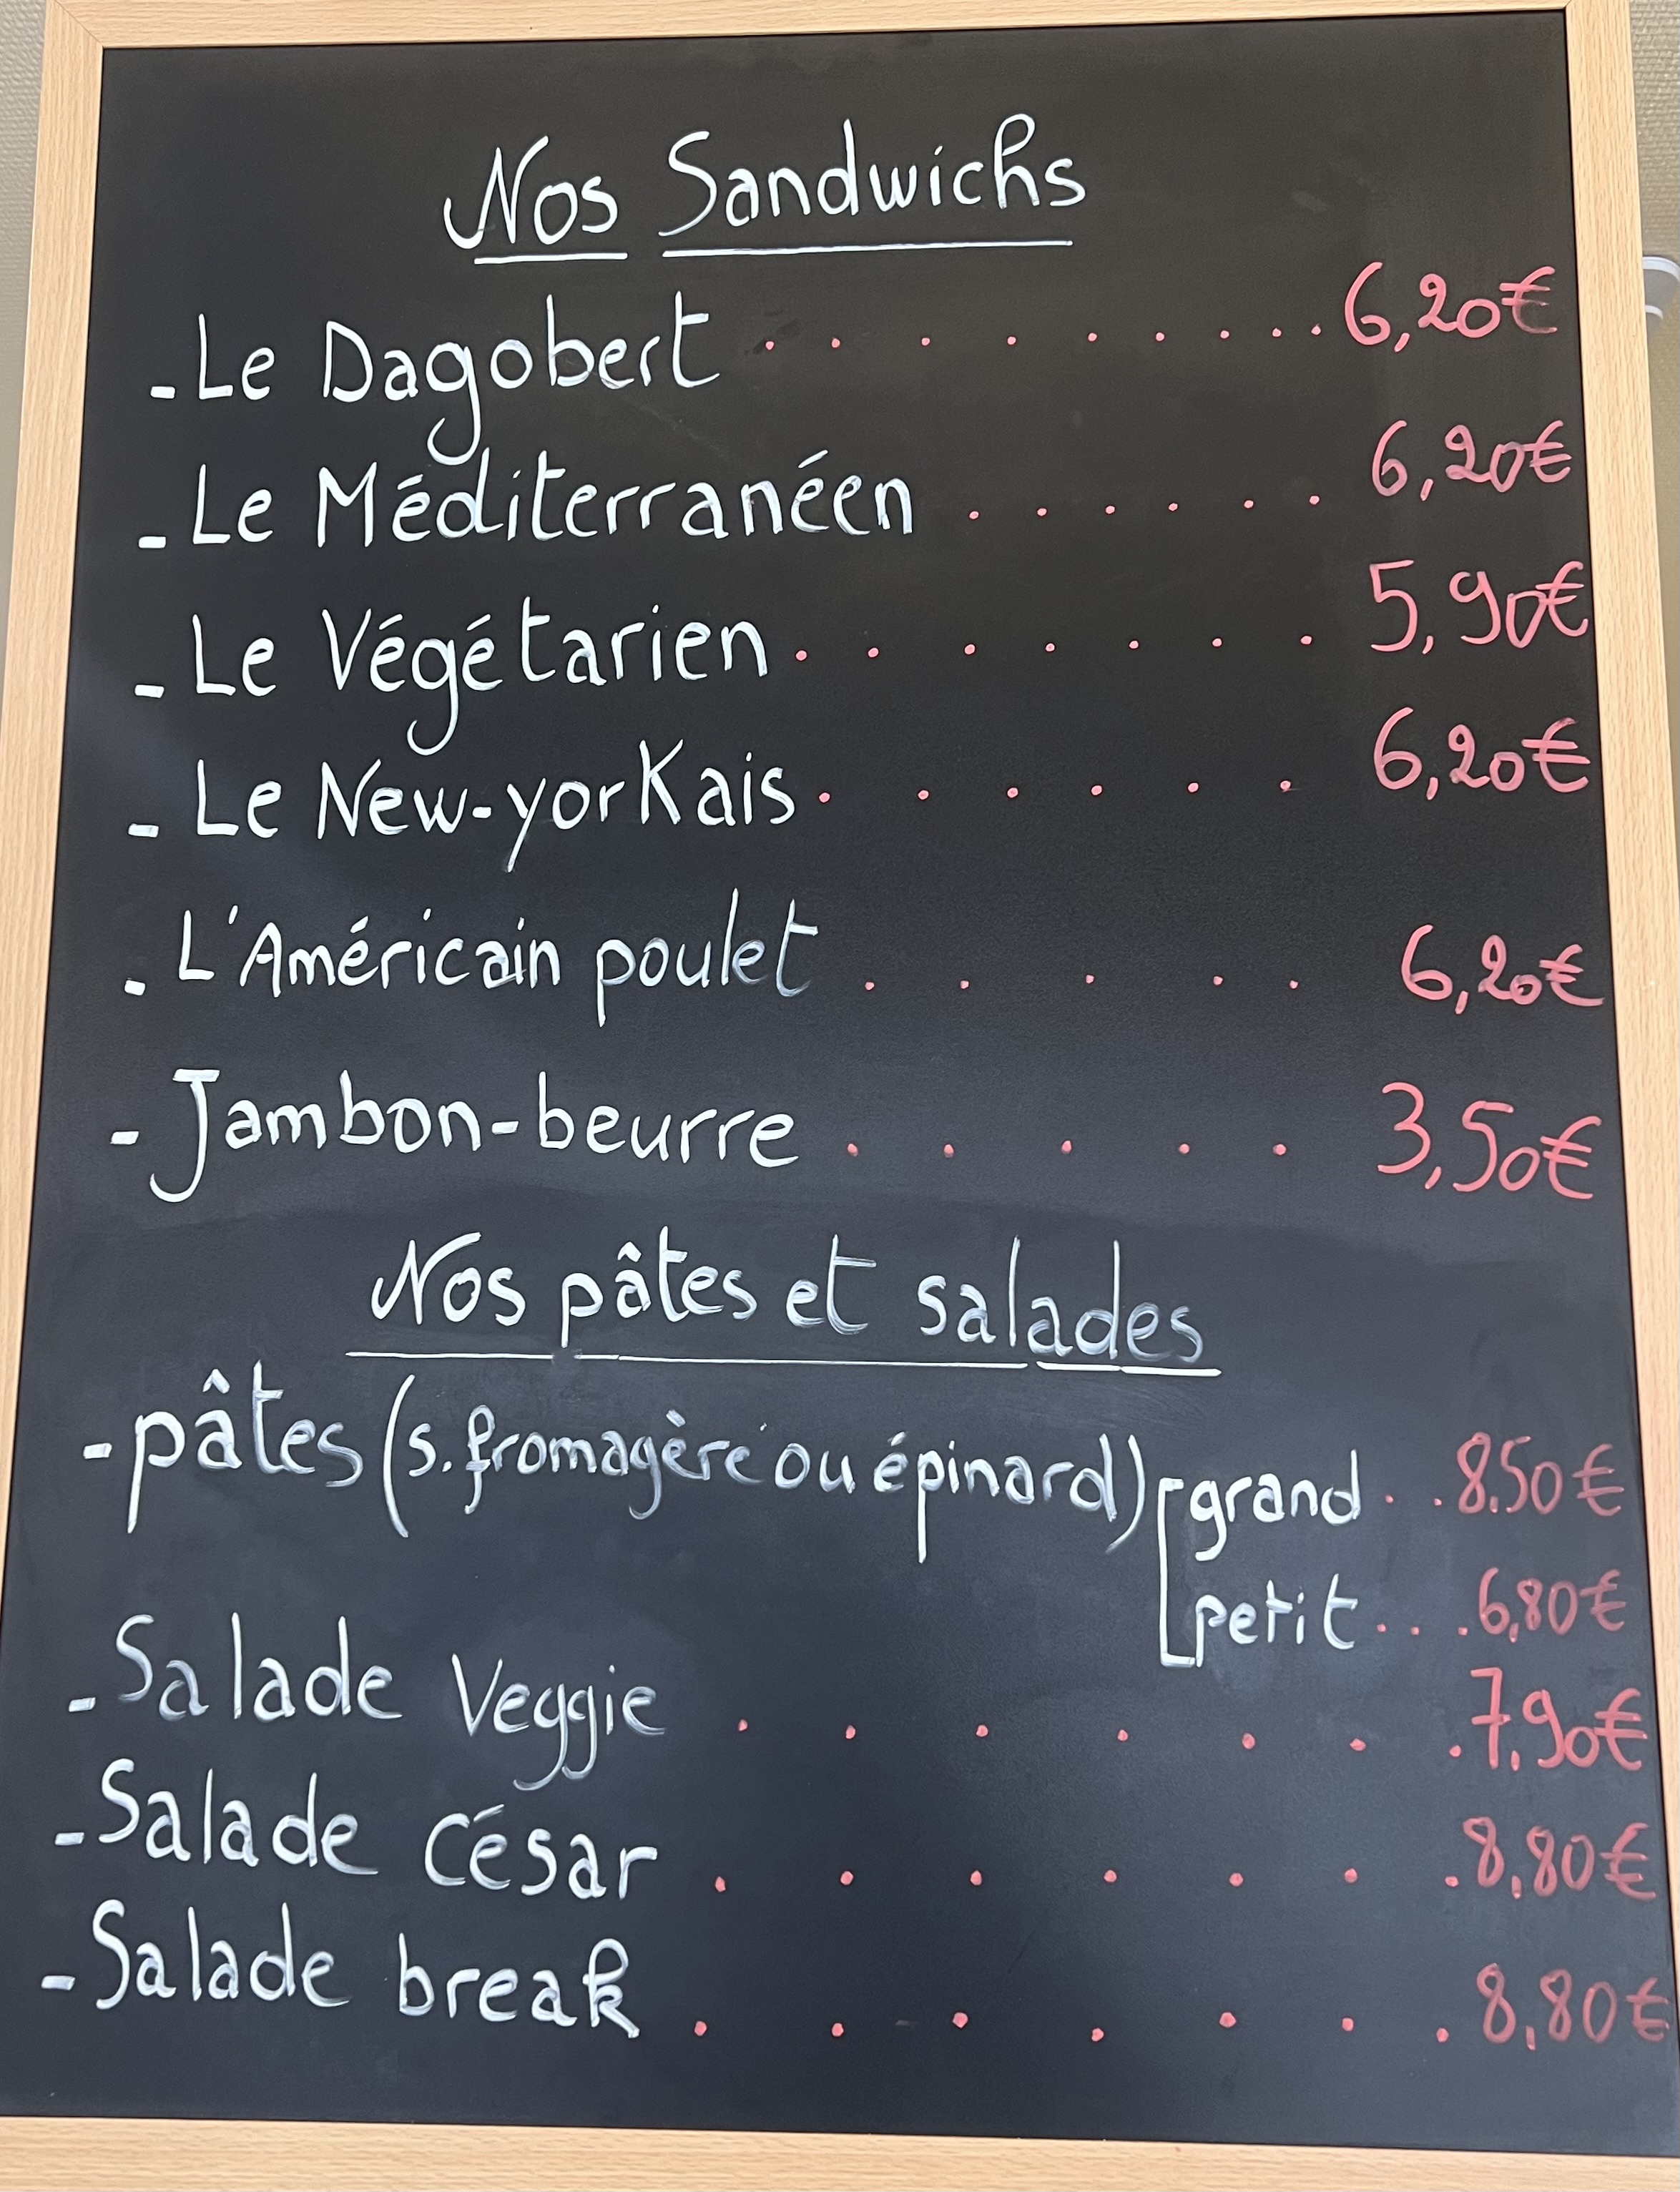 Nos Sandwichs
- Le Dagobert . . . . . . . . . 6,20€
- Le Méditerranéen . . . . . . 6,20€
- Le Végétarien . . . . . . . 5,90€
- Le New-yorkais . . . . . . 6,20€
- L'Américain poulet . . . . . 6,20€
- Jambon-beurre . . . . . 3,50€
Nos pâtes et salades
- pâtes (s. fromagère ou épinard) [grand . . . 8.50€
petit . . . . 6,80€
- Salade Veggie . . . . . . . 7,90€
- Salade César . . . . . . . 8,80€
- Salade break . . . . . . . 8,80€